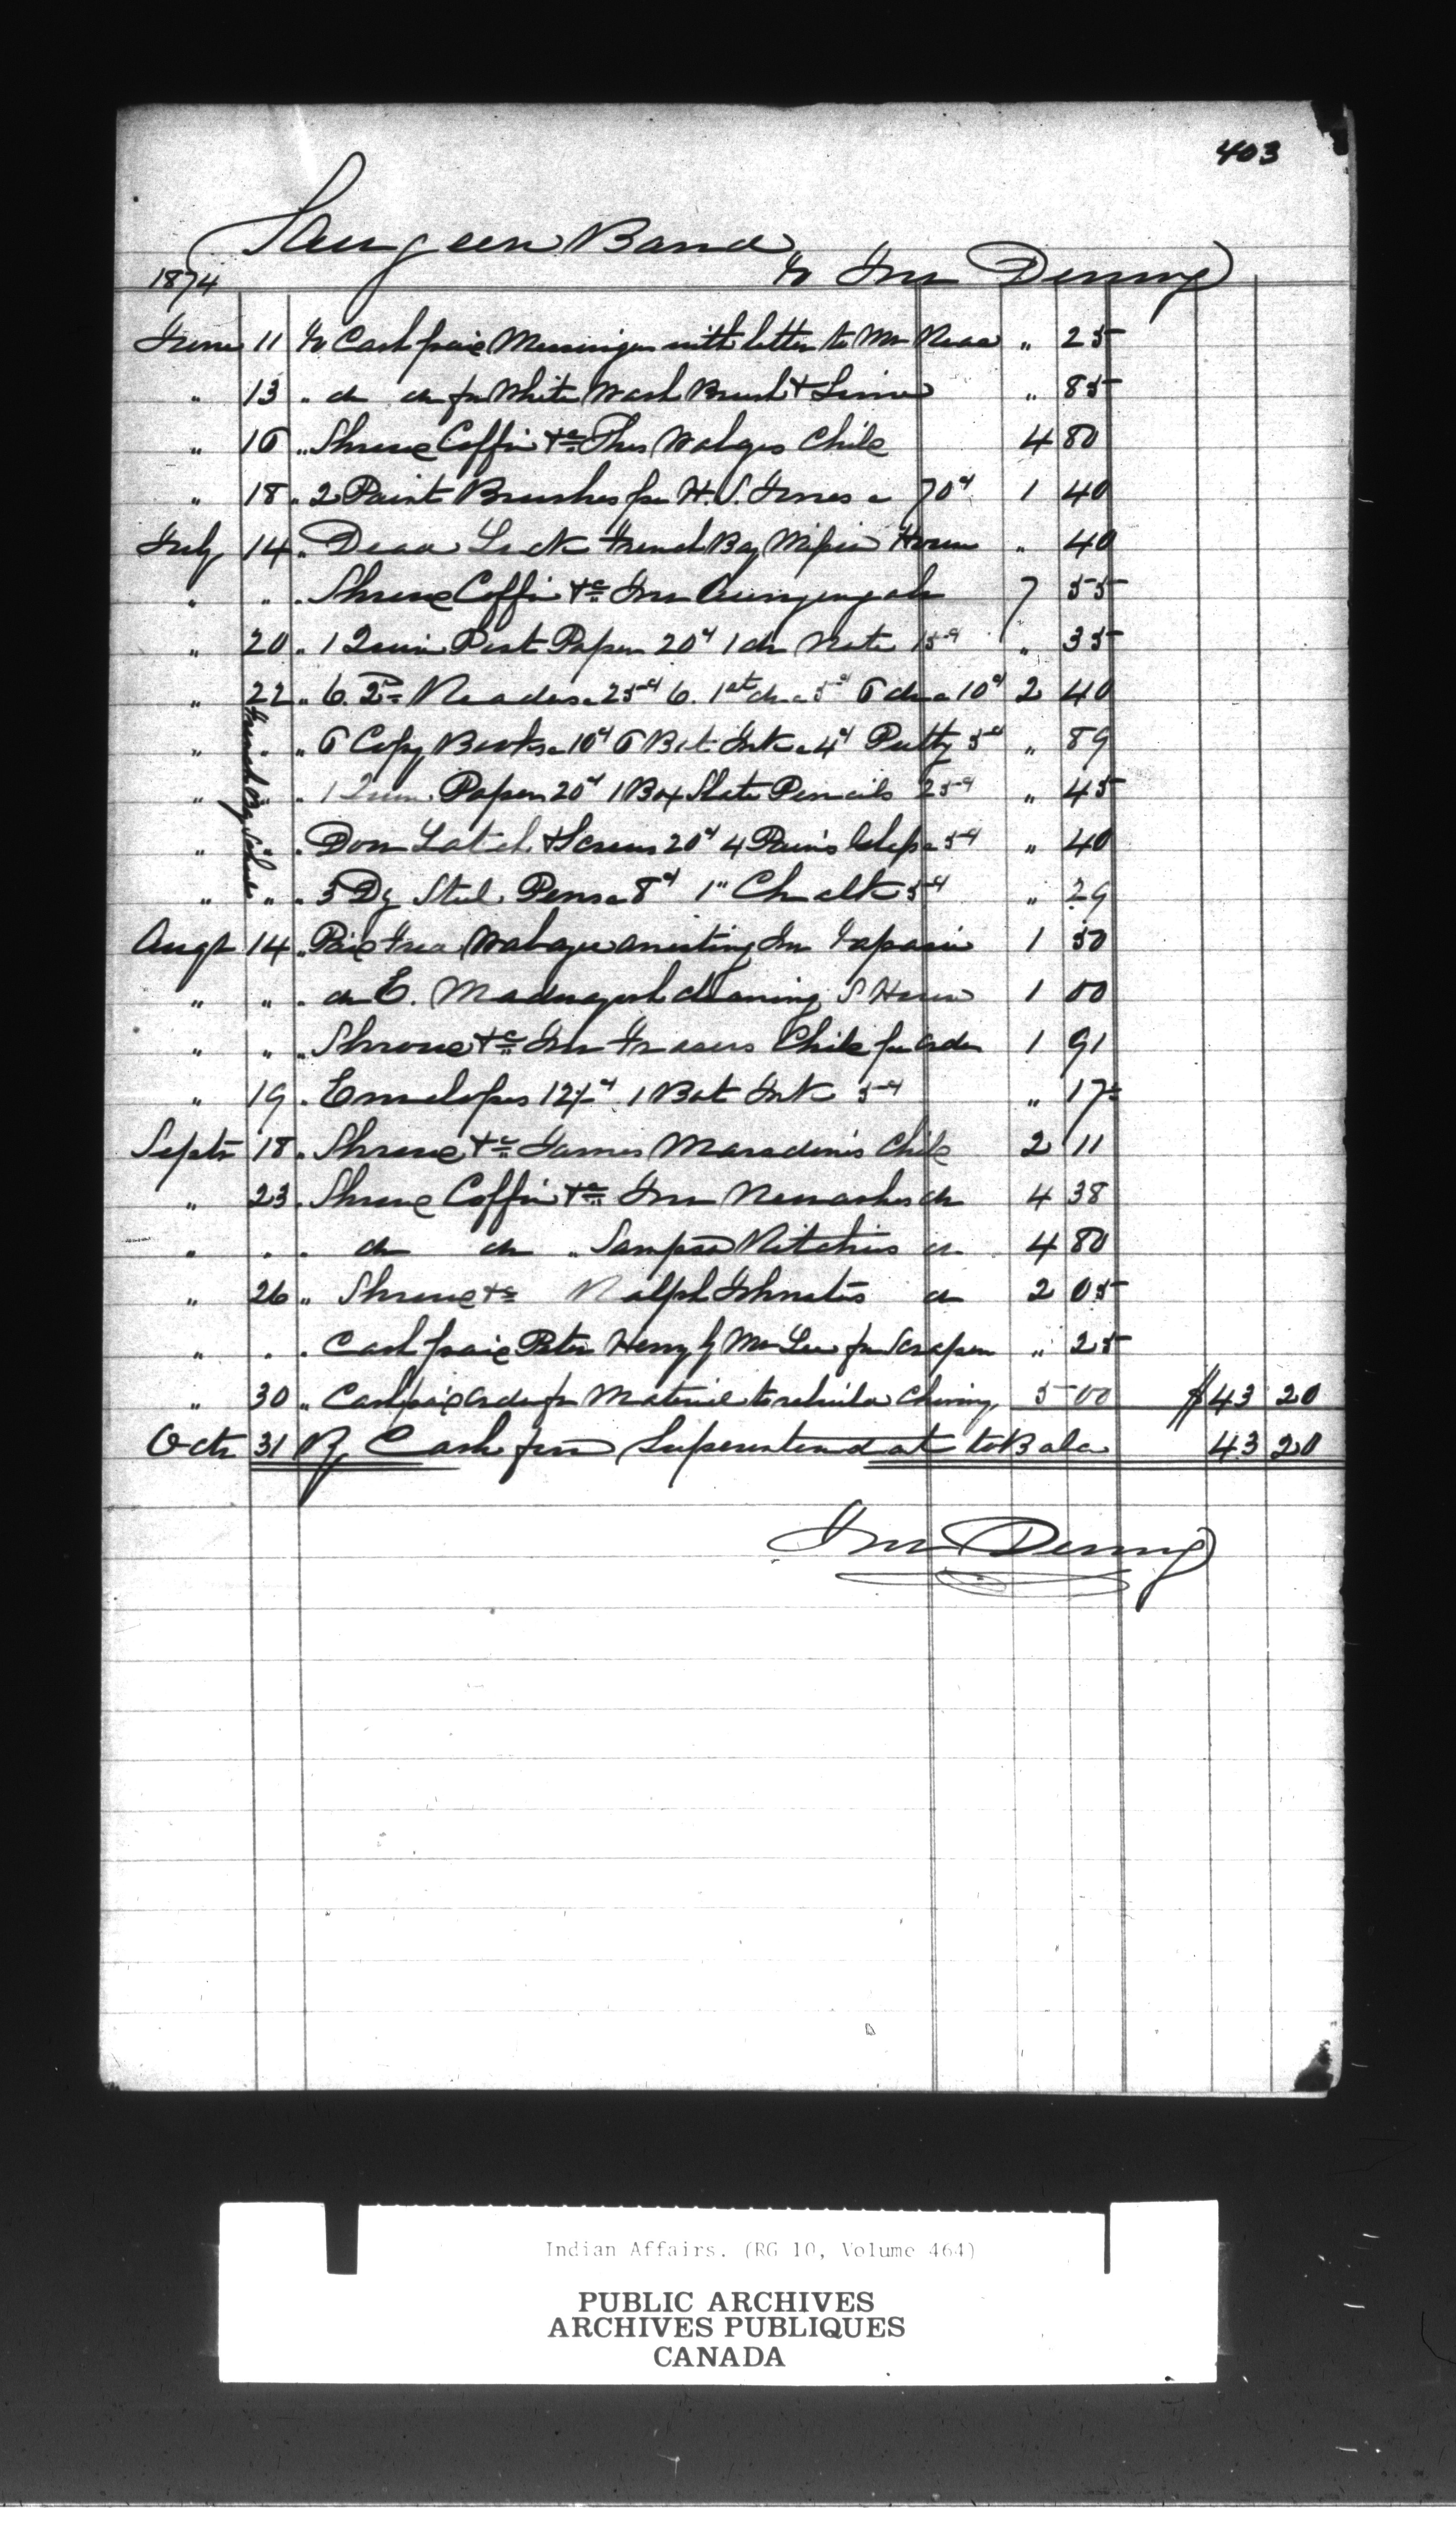 403
Saugeen Band
1874 To Jno Denny
June 11 To Cash paid Messinger with letter to Mr " 25
" 13 " do do for White Wash Brush & Lime " 85
" 16 " Shroud Coffin &c Thos Wabezes Child 4 80
" 18 " 2 Paint Brushes per H. S. Jones a 70c 1 40
July 14 " Dead Lock French Bay Mission House " 40
" " " Shroud Coffin &c Jno 7 55
" 20 " 1 Quire Post Paper 20c 1 do Note 15c " 35
" 22 " 6. 2nd Readers a 25c 6. 1st do a 5c 6 do a 10c 2 40
French Bay School
" " " 6 Copy Books a 10c 6 Bot Ink a 4c Putty 5c " 89
" " " 1 Quire Paper 20c 1 Box Slate Pencils 25c " 45
" " " Door Latch & Screws 20c 4 Pains Glass a 5c " 40
" " " 3 Dz Steel Pens a 8c 1 " Chalk 5c " 29
Augt 14 " Paid arresting Jno 1 50
" " " do E. cleaning S House 1 00
" " " Shroud &c Jno Frasers Child per order 1 91
" 19 " Envelopes 12½c 1 Bot Ink 5c " 17½
Septr 18 " Shroud &c James Marsdens Child 2 11
" 23 " Shroud Coffin &c Jno do 4 38
" " " do do " Sampson Ritchies do 4 80
" 26 " Shroud &c Ralph Johnstons do 2 05
" " " Cash paid Peter Henry by Mr Lee for Scraper " 25
" 30 " Cash paid order for Material to rebuild Chimney 5 00 $43 20
Octr 31 By Cash from Superintendent to Bala 43 20
Jno Denny
Indian Affairs. (RG 10, Volume 464)
PUBLIC ARCHIVES
ARCHIVES PUBLIQUES
CANADA